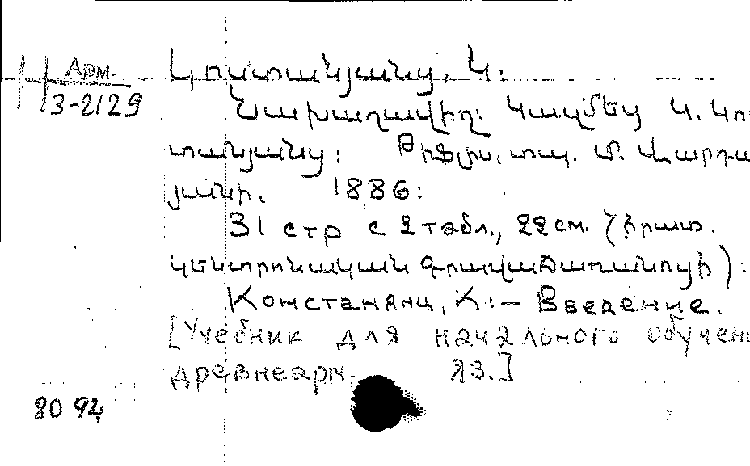 Арм.
3-2129
Կոստանյանց, Կ.
Նախադավիղ. Կազմեց Կ. Կո
տանյանց: Թիֆլիս, տպ. Մ. Վարդա
յանի. 1886:
31 стр с 2 табл., 22 см. (հրատ.
կենտրոնական գրավաճառանոցի):
Костанянц, К.:— Введение.
[Учебник для начального обучен
древнеарм. яз.]
80 94